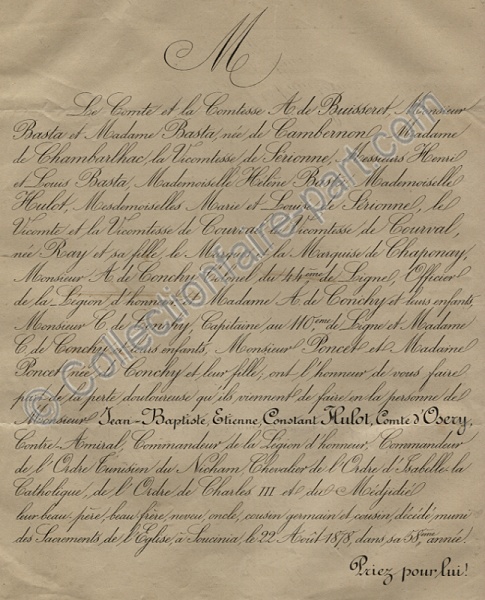 M
Le Comte et la Comtesse A de Buisseret, Monsieur
Basta et Madame Basta, née de Cambernon, Madame
de Chambarlhac, la Vicomtesse de Sérionne, Messieurs Henri
et Louis Basta, Mademoiselle Hélène Basta, Mademoiselle
Hulot, Mesdemoiselles Marie et Louise de Sérionne, le
Vicomte et la Vicomtesse de Courval, la Vicomtesse de Courval,
née Ray et sa fille, le Marquis et la Marquise de Chaponay,
Monsieur A de Conchy, Colonel du 44ème de Ligne, Officier
de la Légion d'honneur et Madame A de Conchy et leurs enfants,
Monsieur C de Conchy, Capitaine au 110ème de Ligne et Madame
C de Conchy et leurs enfants, Monsieur Poncet et Madame
Poncet née de Conchy et leur fille, ont l'honneur de vous faire
part de la perte douloureuse qu'ils viennent de faire en la personne de
Monsieur Jean-Baptiste, Etienne, Constant Hulot, Comte d'Osery,
Contre-Amiral, Commandeur de la Légion d'honneur, Commandeur
de l'Ordre Tunisien du Nicham, Chevalier de l'Ordre d'Isabelle la
Catholique, de l'Ordre de Charles III et du Médjidié
leur beau-père, beau-frère, neveu, oncle, cousin germain et cousin, décédé, muni
des Sacrements de l'Eglise, à Soucinia, le 22 Août 1878, dans sa 58ème année!
Priez pour lui!
© Collectionfaire-part.com